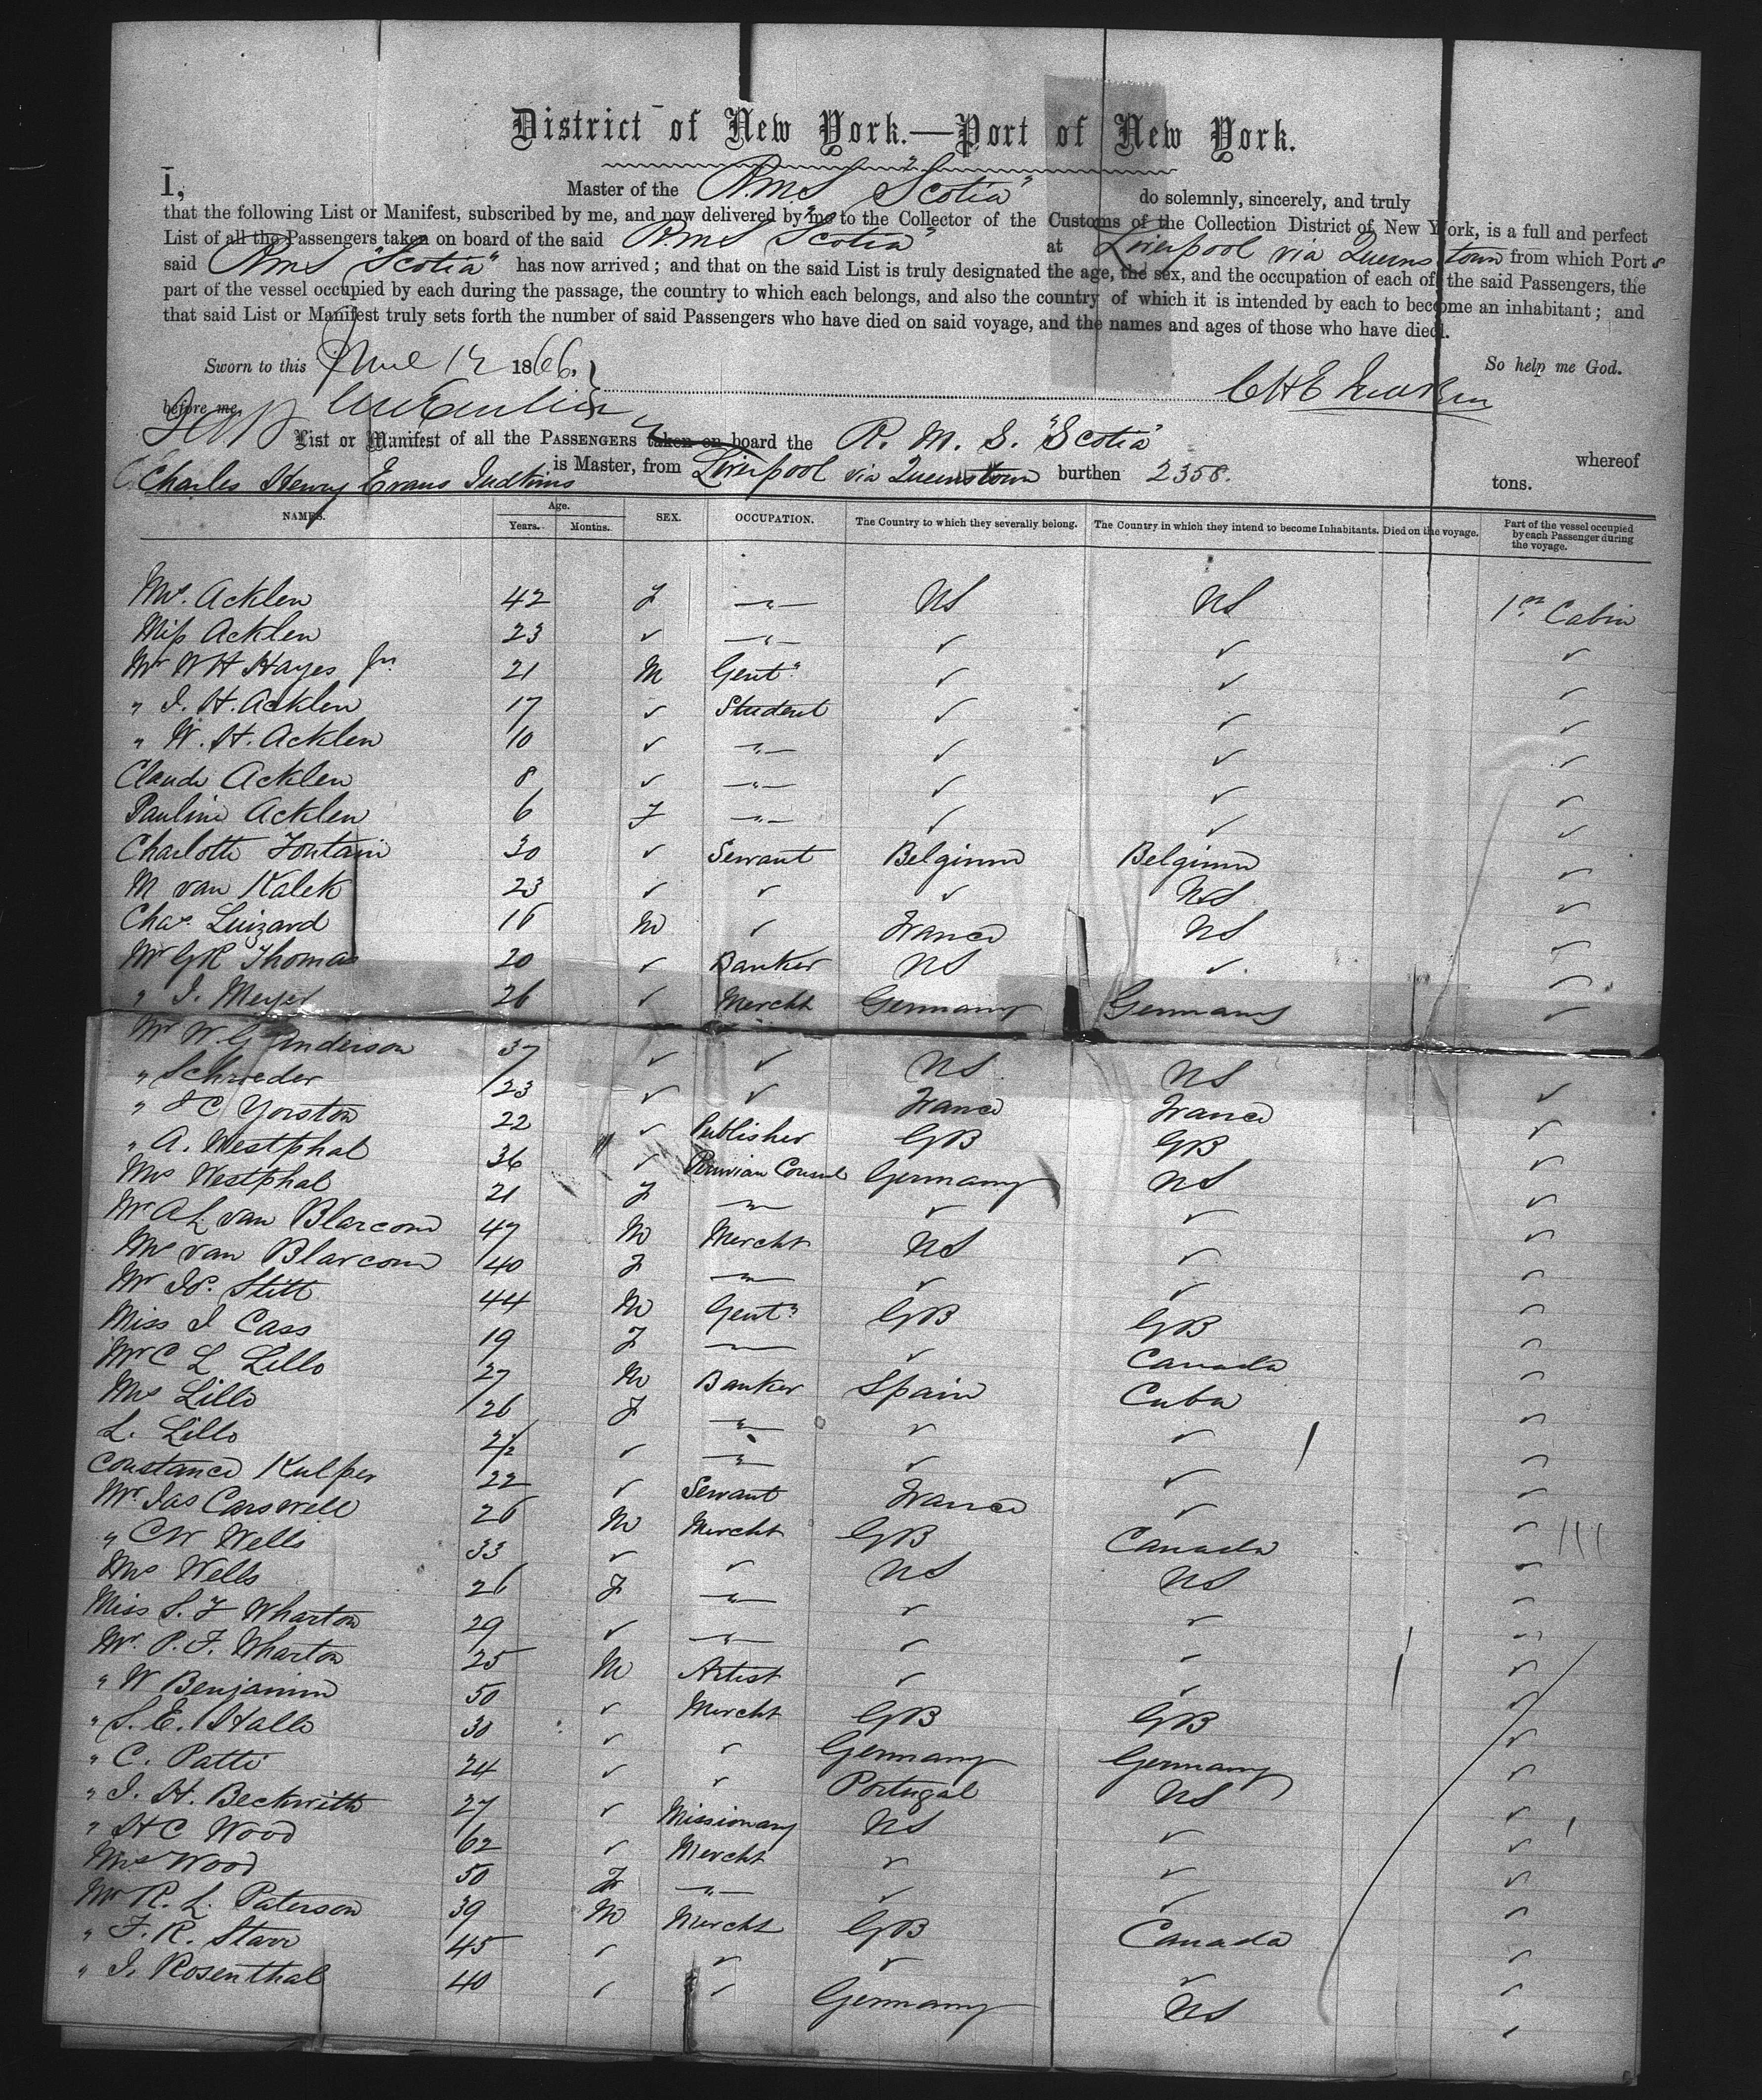 District of New York.—Port of New York.
I, Master of the R.M.S "Scotia" do solemnly, sincerely, and truly
that the following List or Manifest, subscribed by me, and now delivered by me to the Collector of the Customs of the Collection District of New York, is a full and perfect
List of all the Passengers taken on board of the said R.M.S "Scotia" at Liverpool via Queenstown from which Port s
said RMS "Scotia" has now arrived; and that on the said List is truly designated the age, the sex, and the occupation of each of the said Passengers, the
part of the vessel occupied by each during the passage, the country to which each belongs, and also the country of which it is intended by each to become an inhabitant; and
that said List or Manifest truly sets forth the number of said Passengers who have died on said voyage, and the names and ages of those who have died.
So help me God.
Sworn to this June 12 1866.
before me,
List or Manifest of all the PASSENGERS taken on board the R. M. S. "Scotia" whereof
Charles Henry Evans Judkins is Master, from Liverpool via Queenstown burthen 2358. tons.
NAMES. Age. Years. Months. SEX. OCCUPATION. The Country to which they severally belong. The Country in which they intend to become Inhabitants. Died on the voyage. Part of the vessel occupied by each Passenger during the voyage.
Mrs. Acklen 42 F —"— US US 1st Cabin
Miss Acklen 23 ✓ —"— ✓ ✓ ✓
Mr W H Hayes Jr. 21 M Gentn ✓ ✓ ✓
" J. H. Acklen 17 ✓ Student ✓ ✓ ✓
" W. H. Acklen 10 ✓ —"— ✓ ✓ ✓
Claude Acklen 8 ✓ —"— ✓ ✓ ✓
Pauline Acklen 6 F —"— ✓ ✓ ✓
Charlotte Fontain 30 ✓ Servant Belgium Belgium ✓
M van Kalek 23 ✓ ✓ ✓ US ✓
Chas. Luizard 16 M ✓ France US ✓
Mr GR Thomas 20 ✓ Banker US ✓ ✓
" J. Meyer 26 ✓ Mercht Germany Germany ✓
Mr W. G Anderson 37 ✓ ✓ US US ✓
" Schrieder 23 ✓ ✓ France France ✓
" J C Yorston 22 ✓ Publisher GB GB ✓
" A. Westphal 36 ✓ Peruvian Consul Germany US ✓
Mrs Westphal 21 F —"— ✓ ✓ ✓
Mr A L van Blarcom 47 M Mercht US ✓ ✓
Mrs van Blarcom 40 F —"— ✓ ✓ ✓
Mr Js. Stitt 44 M Gentn GB GB ✓
Miss J Cass 19 F —"— ✓ Canada ✓
Mr C L Lillo 27 M Banker Spain Cuba ✓
Mrs Lillo 26 F —"— ✓ ✓ ✓
L. Lillo 2½ ✓ —"— ✓ ✓ ✓
Constance Kulper 22 ✓ Servant France ✓ ✓
Mr. Jas Carswell 26 M Mercht GB Canada ✓
" CW Wells 33 ✓ ✓ US US ✓
Mrs Wells 26 F —"— ✓ ✓ ✓
Miss S. F Wharton 29 ✓ —"— ✓ ✓ ✓
Mr. P. F. Wharton 25 M Artist ✓ ✓ ✓
" W Benjamin 50 ✓ Mercht GB GB ✓
" S. E. Halle 30 ✓ ✓ Germany Germany ✓
" C. Patti 24 ✓ ✓ Portugal US ✓
" J. H. Beckwith 27 ✓ Missionary US ✓ ✓
" HC Wood 62 ✓ Mercht ✓ ✓ ✓
Mrs Wood 50 F —"— ✓ ✓ ✓
Mr R. L. Paterson 39 M Mercht GB Canada ✓
" F. R. Starr 45 ✓ ✓ ✓ ✓ ✓
" J. Rosenthal 40 ✓ ✓ Germany US ✓